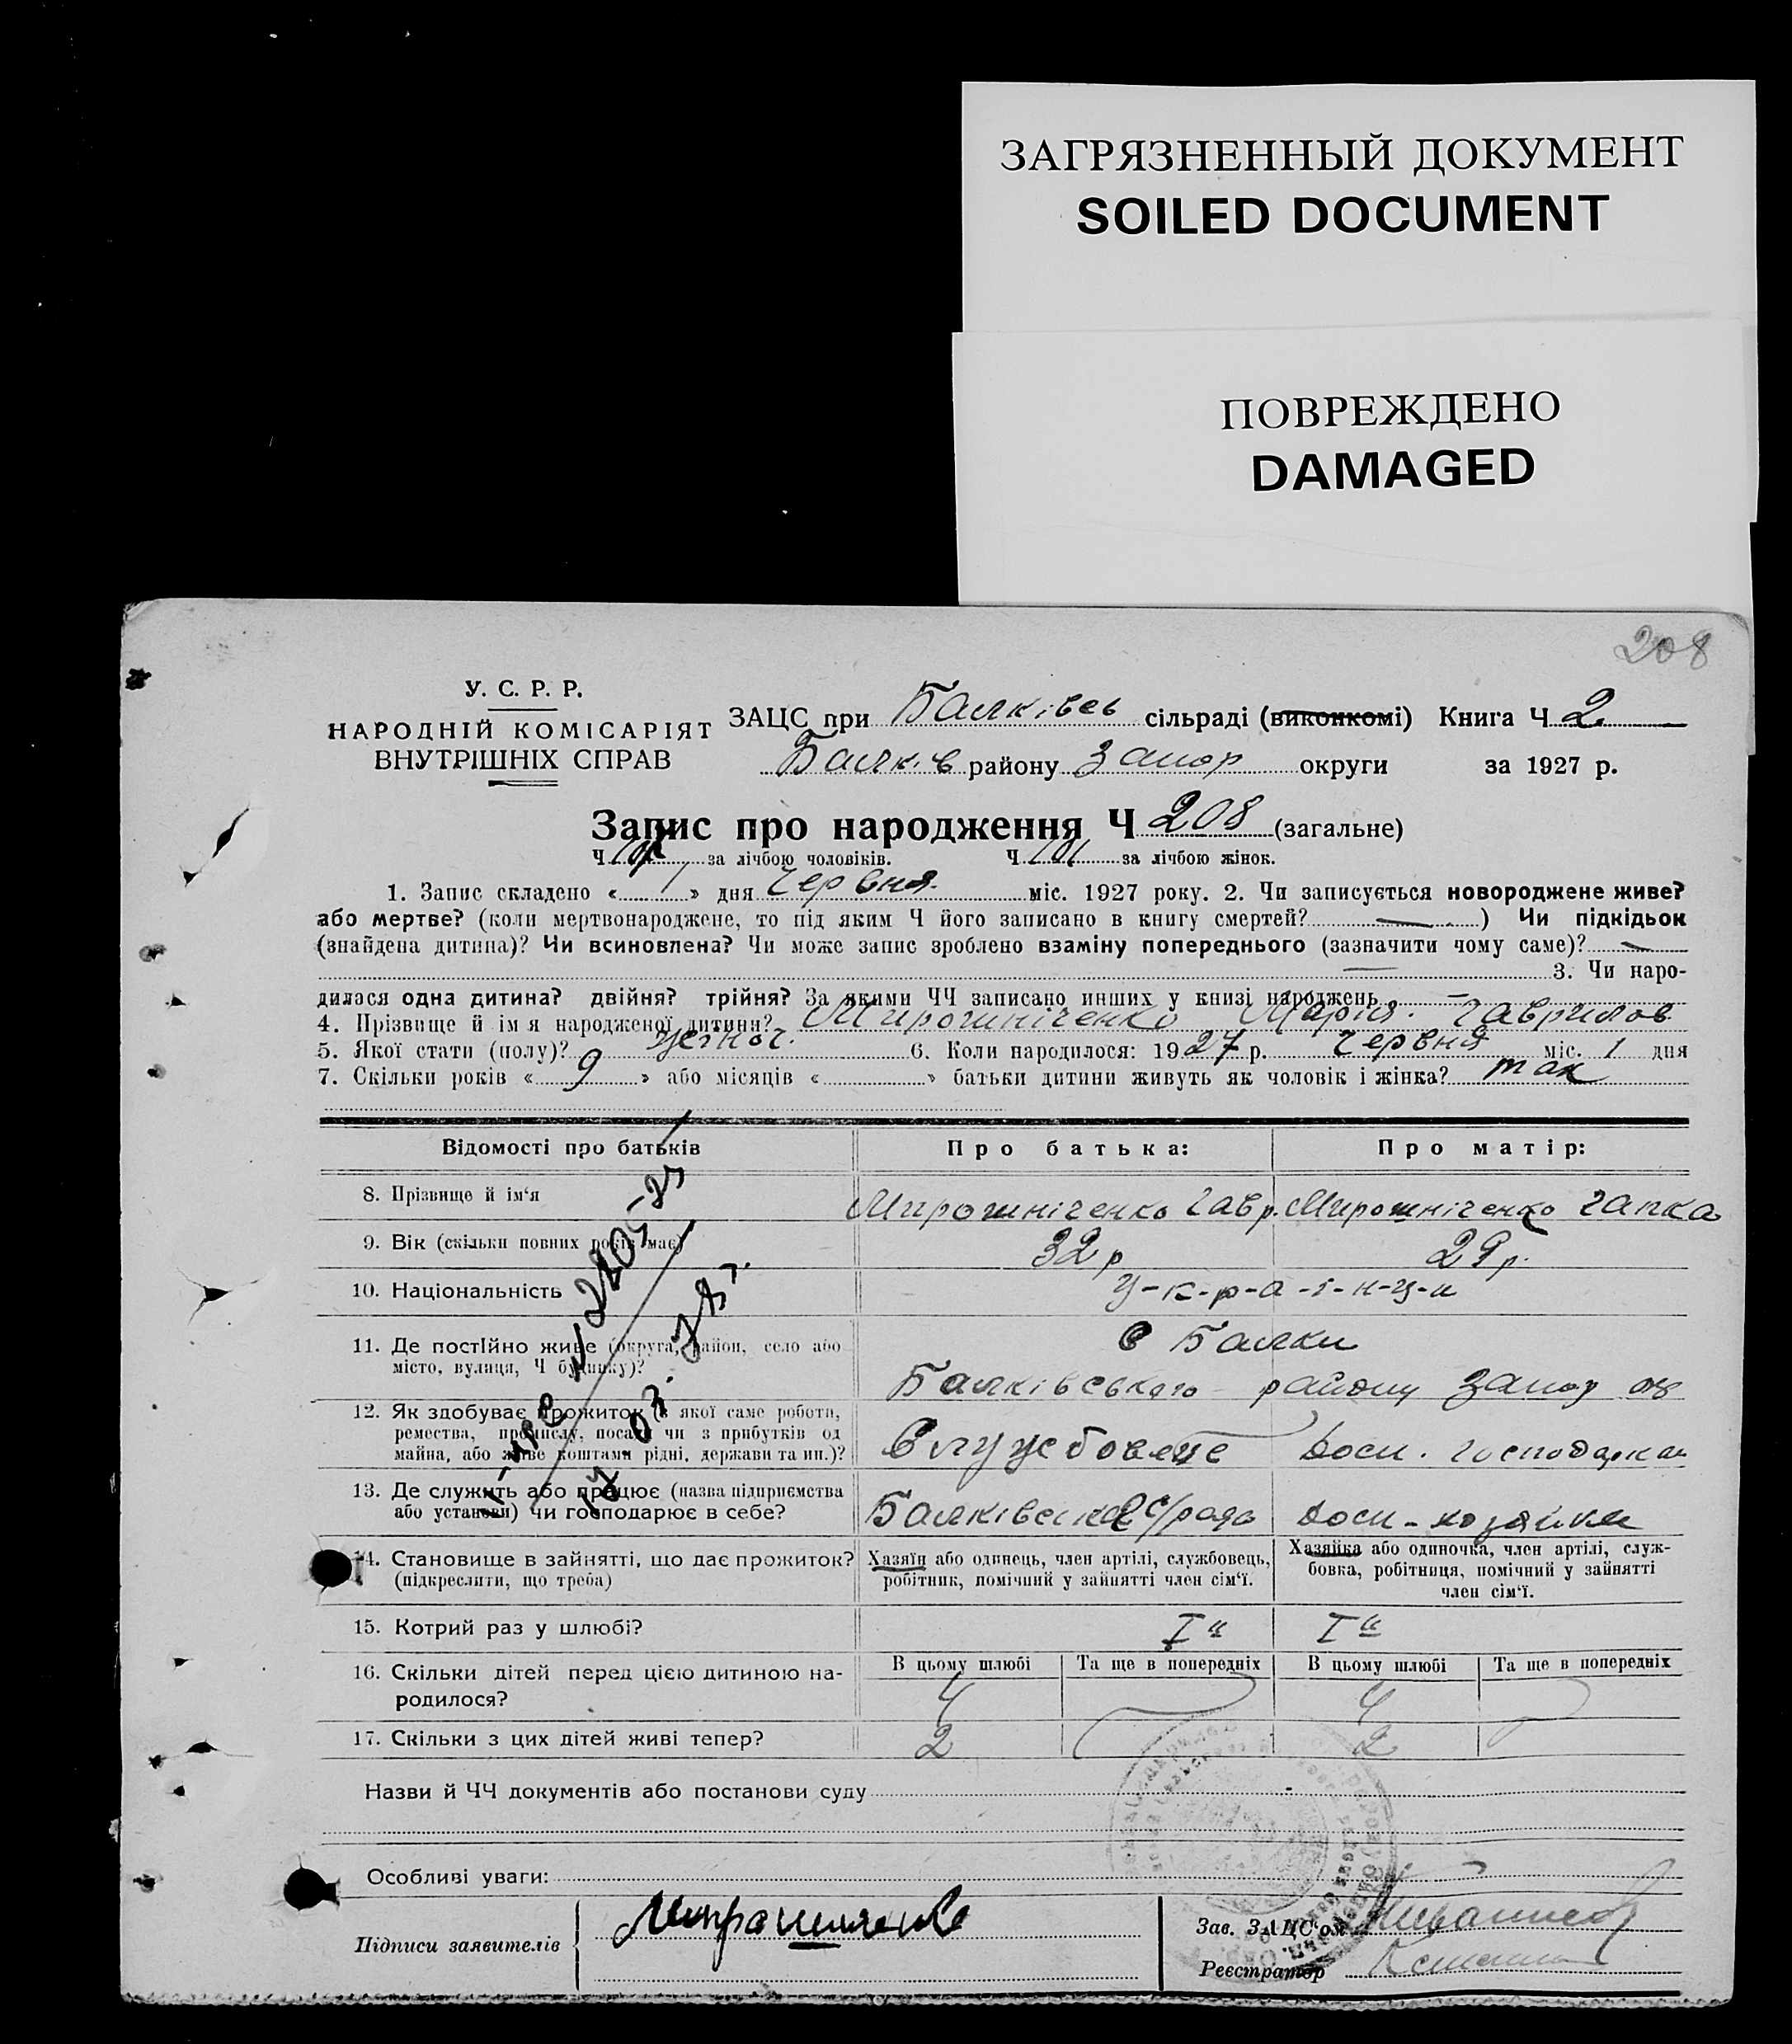 ЗАГРЯЗНЕННЫЙ ДОКУМЕНТ
SOILED DOCUMENT
ПОВРЕЖДЕНО
DAMAGED
208
У. С. Р. Р.
НАРОДНІЙ КОМІСАРІЯТ
ВНУТРІШНІХ СПРАВ
ЗАЦС при Балківсь сільраді (виконкомі) Книга Ч 2
Балків району Запор округи за 1927 р.
Запис про народження Ч 208 (загальне)
Ч за лічбою чоловіків. Ч 101 за лічбою жінок.
1. Запис складено « 1 » дня Червня міс. 1927 року. 2. Чи записується новороджене живе?
або мертве? (коли мертвонароджене, то під яким Ч його записано в книгу смертей? — ) Чи підкідьок
(знайдена дитина)? Чи всиновлена? Чи може запис зроблено взаміну попереднього (зазначити чому саме)? —
— 3. Чи наро-
дилася одна дитина? двійня? трійня? За якими ЧЧ записано инших у книзі народжень —
4. Прізвище й ім'я народженої дитини? Мирошніченко Марія Гаврилов
5. Якої стати (полу)? жіноч. 6. Коли народилося: 1927 р. Червня міс. 1 дня
7. Скільки років « 9 » або місяців « » батьки дитини живуть як чоловік і жінка? так
Відомості про батьків Про батька: Про матір:
8. Прізвище й ім'я Мирошніченко Гавр. Мирошніченко Гапка
9. Вік (скільки повних років має) 32 р 29 р.
10. Національність у-к-р-а-ї-н-ц-и
11. Де постійно живе (округа, район, село або
місто, вулиця, Ч будинку)?
с Балки
Балківського району Запор ок
12. Як здобуває прожиток (з якої саме роботи,
ремества, промислу, посади чи з прибутків од
майна, або живе коштами рідні, держави та ин.)?
Службовець Дом. господарка
13. Де служить або працює (назва підприємства
або установи) чи господарює в себе?
Балківська с/рада Дом - хозяйка
14. Становище в зайнятті, що дає прожиток?
(підкреслити, що треба)
Хазяїн або одинець, член артілі, службовець,
робітник, помічний у зайнятті член сім'ї.
Хазяйка або одиночка, член артілі, служ-
бовка, робітниця, помічний у зайнятті
член сім'ї.
15. Котрий раз у шлюбі? I й I й
16. Скільки дітей перед цією дитиною на-
родилося?
В цьому шлюбі Та ще в попередніх В цьому шлюбі Та ще в попередніх
4 4
17. Скільки з цих дітей живі тепер? 2 2
Назви й ЧЧ документів або постанови суду -
Особливі уваги:
Підписи заявителів
Зав. ЗАЦС'ом
Реєстратор